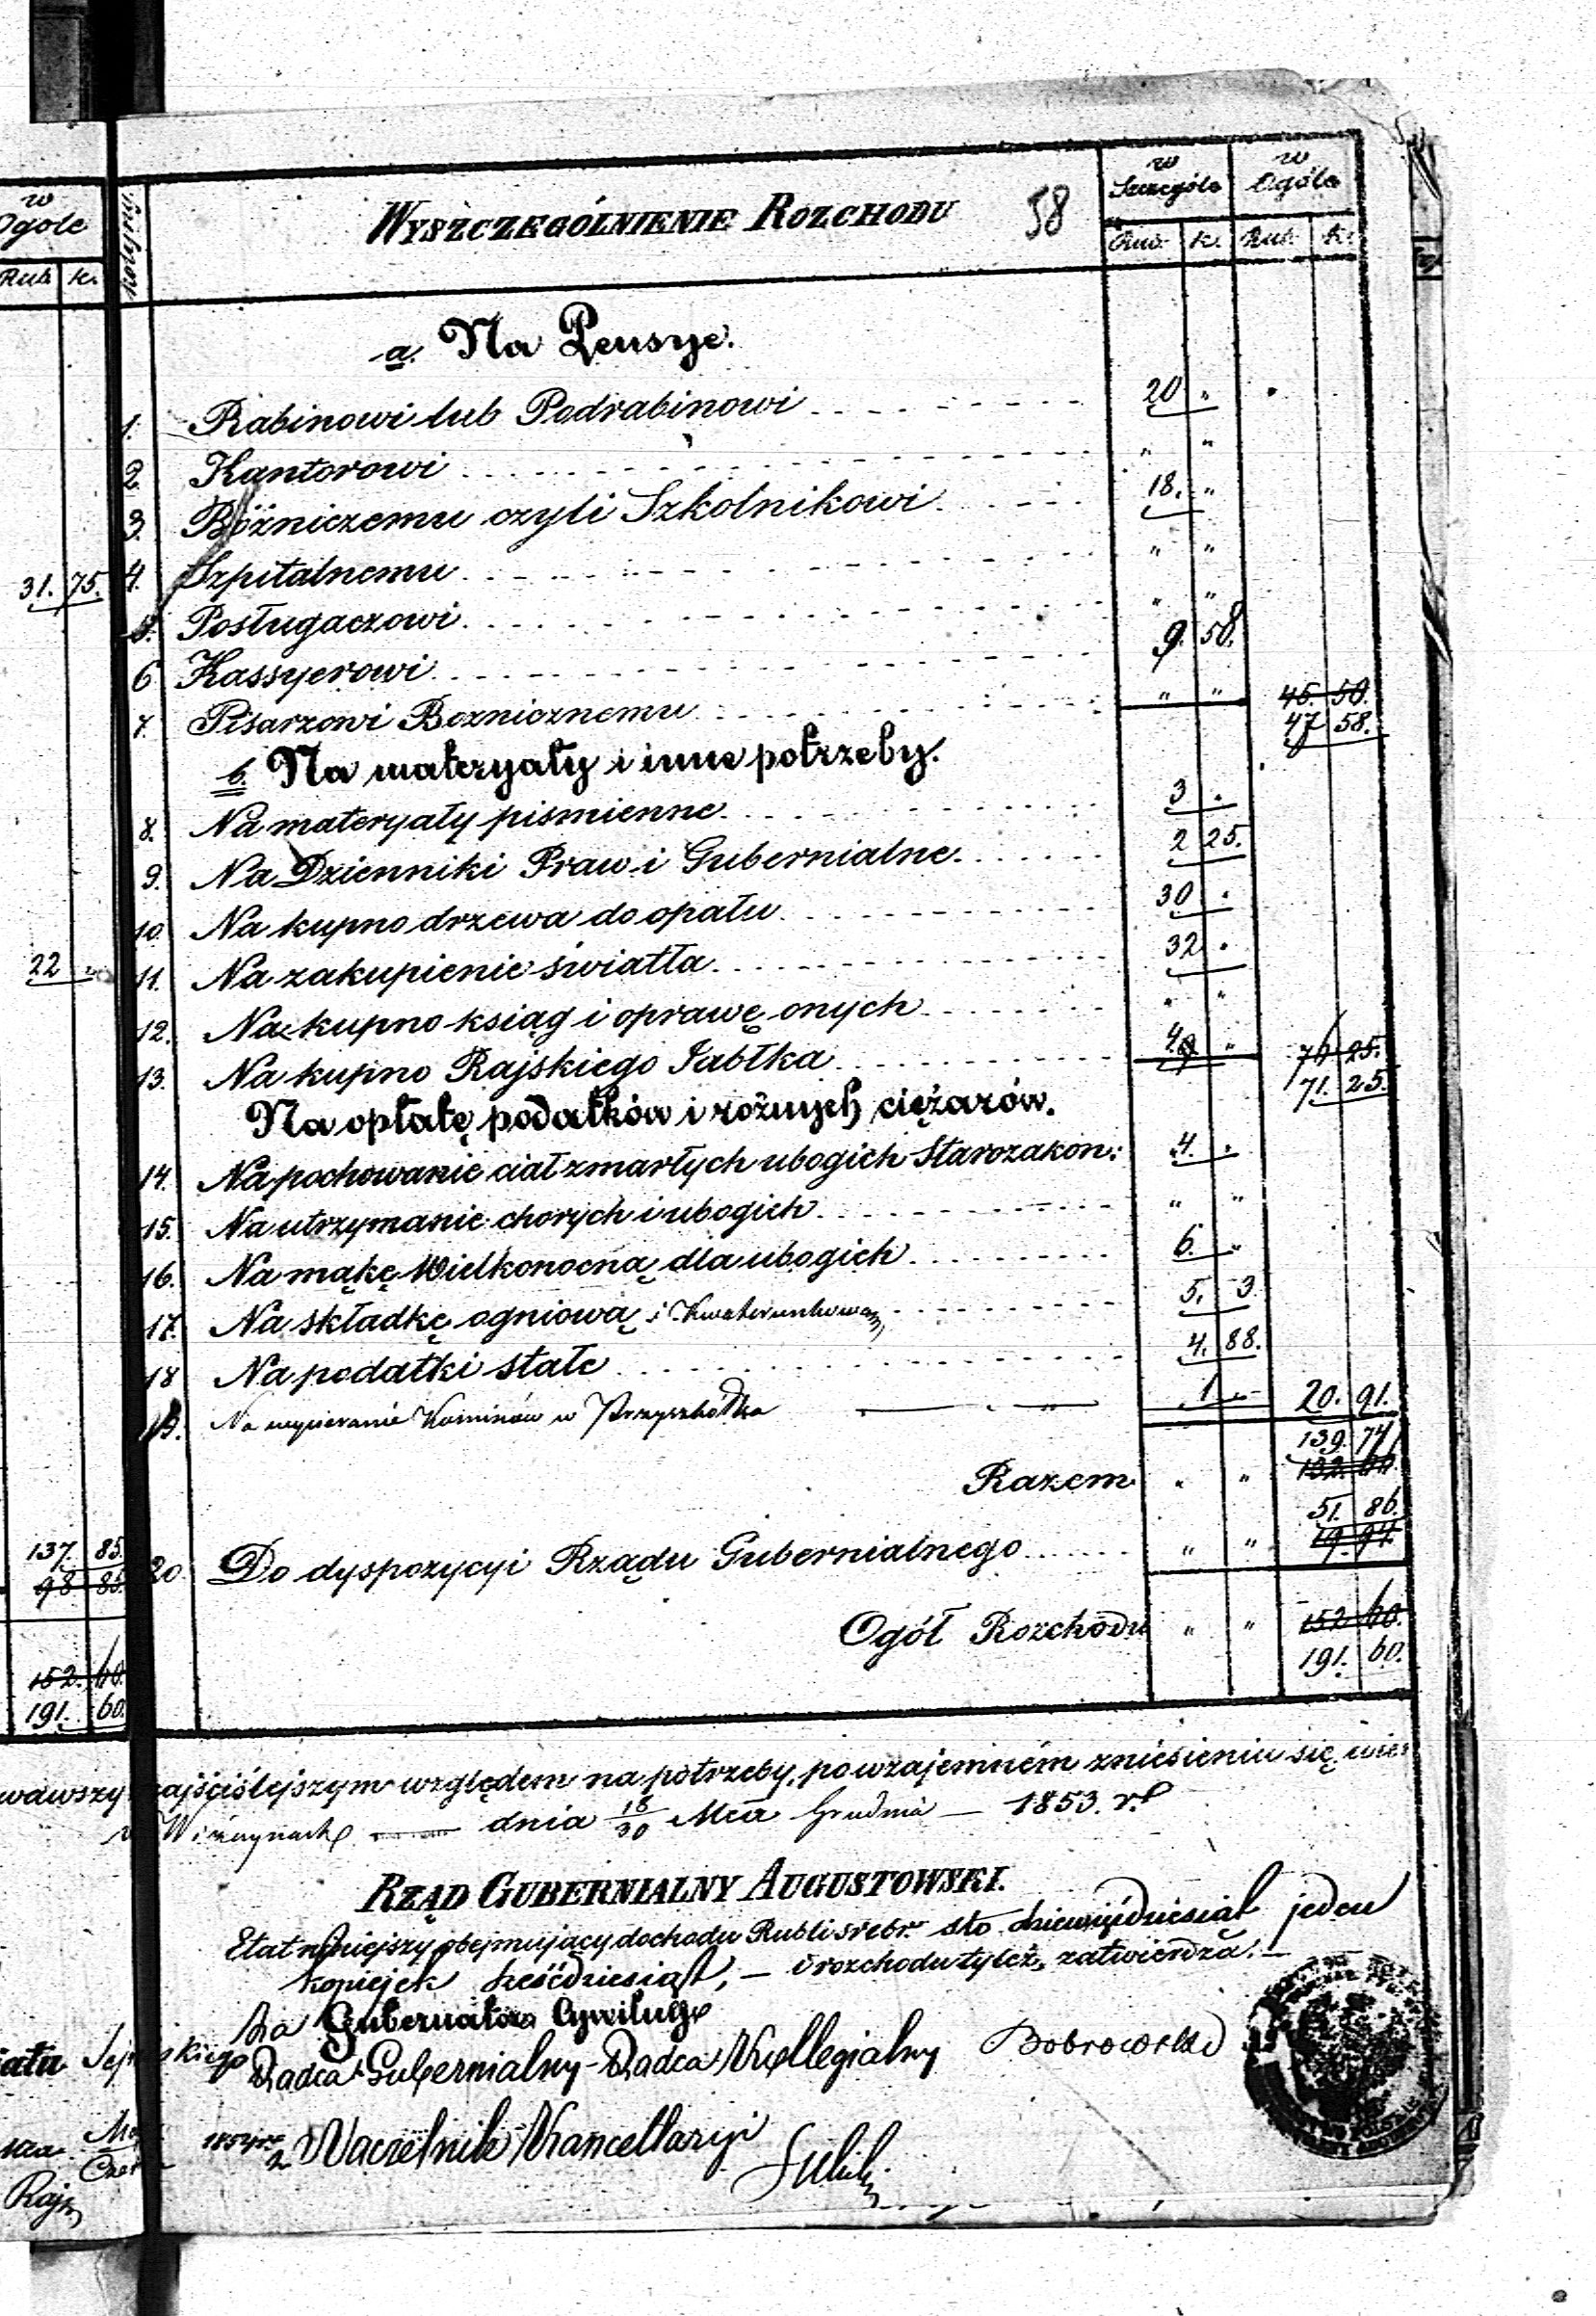 w Ogóle
Rub. k.
31. 75.
22 „
137. 85.
98 85
152. 60.
191. 60.
Rozchodu
WYSZCZEGÓLNIENIE ROZCHODU 58
w Szczególe
w Ogóle
Rub. k. Rub. k.
a. Na Pensye.
1. Rabinowi lub Podrabinowi 20 „
2. Kantorowi „ „
3. Bóżniczemu czyli Szkolnikowi 18. „
4. Szpitalnemu „ „
5. Posługaczowi „ „
6 Kassyerowi 9. 58.
7. Pisarzowi Boznicznemu „ „ 45. 50.
47 58.
b. Na materyały i inne potrzeby.
8. Na materyały piśmienne 3 „
9. Na Dzienniki Praw i Gubernialne 2 25.
10. Na kupno drzewa do opału 30 „
11. Na zakupienie światła 32 „
12. Na kupno ksiąg i oprawę onych „ „
13. Na kupno Rajskiego Jabłka 4 „ 76 25.
71. 25.
Na opłatę podatków i rożnych ciężarów.
14. Na pochowanie ciał zmarłych ubogich Starozakon: 4. „
15. Na utrzymanie chorych i ubogich „ „
16. Na mąkę Wielkonocną dla ubogich 6. „
17. Na składkę ogniową i Kwaterunkową 5. 3
18 Na podatki stałe 4. 88.
19. Na wycieranie Kominów w Przyszkółku 1 „ 20. 91.
139. 74
Razem „ „ 132.
51. 86.
20. Do dyspozycyi Rządu Gubernialnego „ „ 19. 94
Ogół Rozchodu „ „ 152 60.
191. 60.
wawszy najściślejszym względem na potrzeby, po wzajemném zniesieniu się
w Wiżaynach dnia 18/30 Mca Grudnia — 1853. r.
RZĄD GUBERNIALNY AUGUSTOWSKI.
Etat niniejszy obejmujący dochodu Rubli srebr. sto dziewięćdziesiąt jeden
kopiejek sześćdziesiąt, — i rozchodu tyleż, zatwierdza. —
Za Gubernatora Cywilnego
Radca Gubernialny Radca Kollegialny Dobrowolski
Naczelnik Kancellaryi